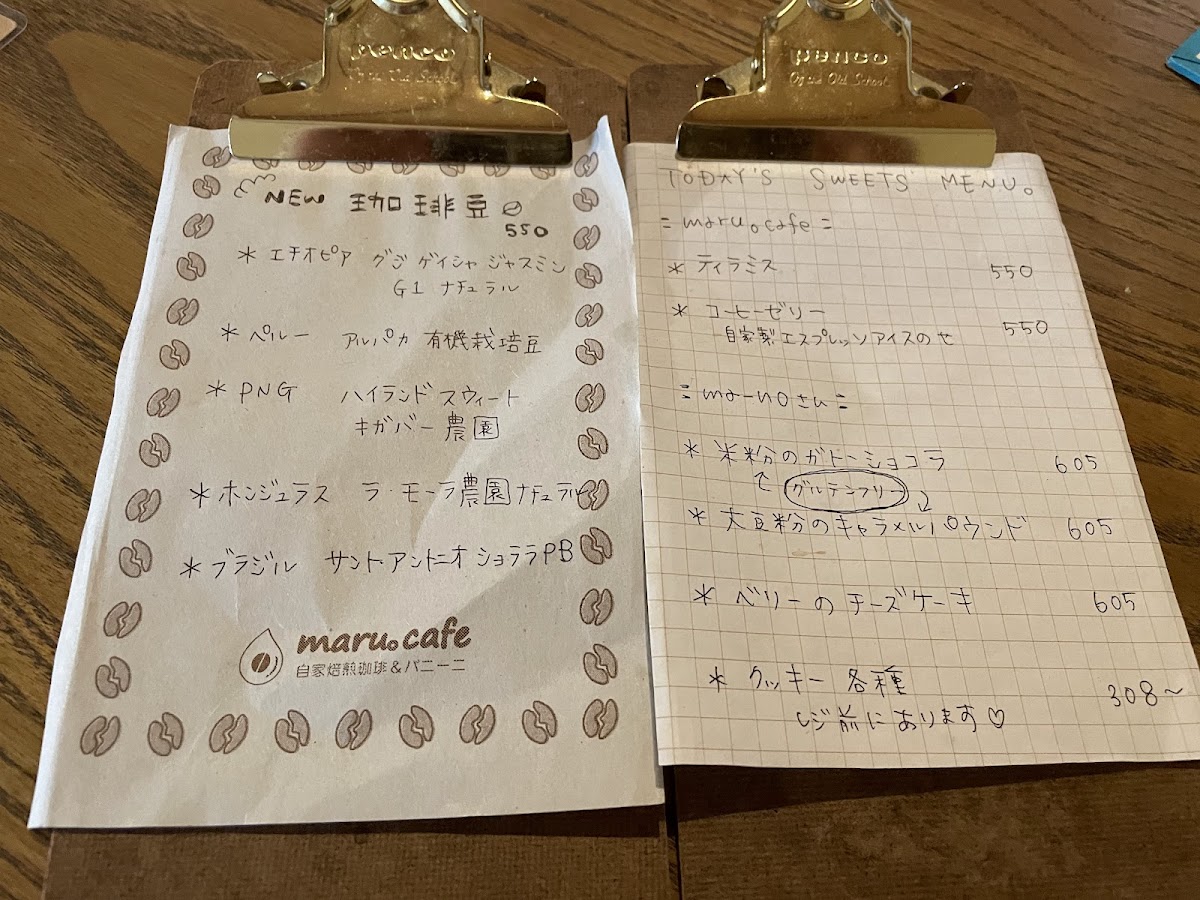 penco
Of the Old School
NEW 珈琲豆
550
* エチオピア グジ ゲイシャ ジャスミン
G1 ナチュラル
* ペルー アルパカ 有機栽培豆
* PNG ハイランド スウィート
キガバー農園
* ホンジュラス ラ・モーラ農園 ナチュラル
* ブラジル サント・アントニオ ショララ PB
maru。cafe
自家焙煎珈琲&パニーニ
penco
Of the Old School
TODAY'S SWEETS MENU。
= maru。cafe =
* ティラミス 550
* コーヒーゼリー 550
自家製エスプレッソアイスのせ
= ma-noさん =
* 米粉のガトーショコラ 605
グルテンフリー
* 大豆粉のキャラメルパウンド 605
* ベリーのチーズケーキ 605
* クッキー 各種 308~
レジ前にあります♡